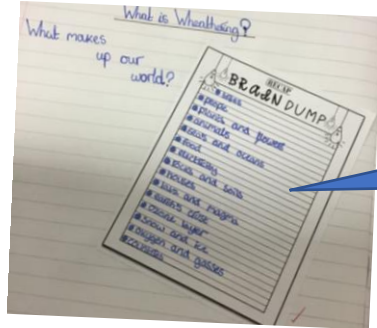 What is Wheathering?
What makes
up our
world?
RECAP
BRAIN DUMP
people
plants and flowers
animals
seas and oceans
food
electricity
rocks and soils
houses
lava and magma
earth's crust
ozone layer
snow and ice
oxygen and gasses
countries